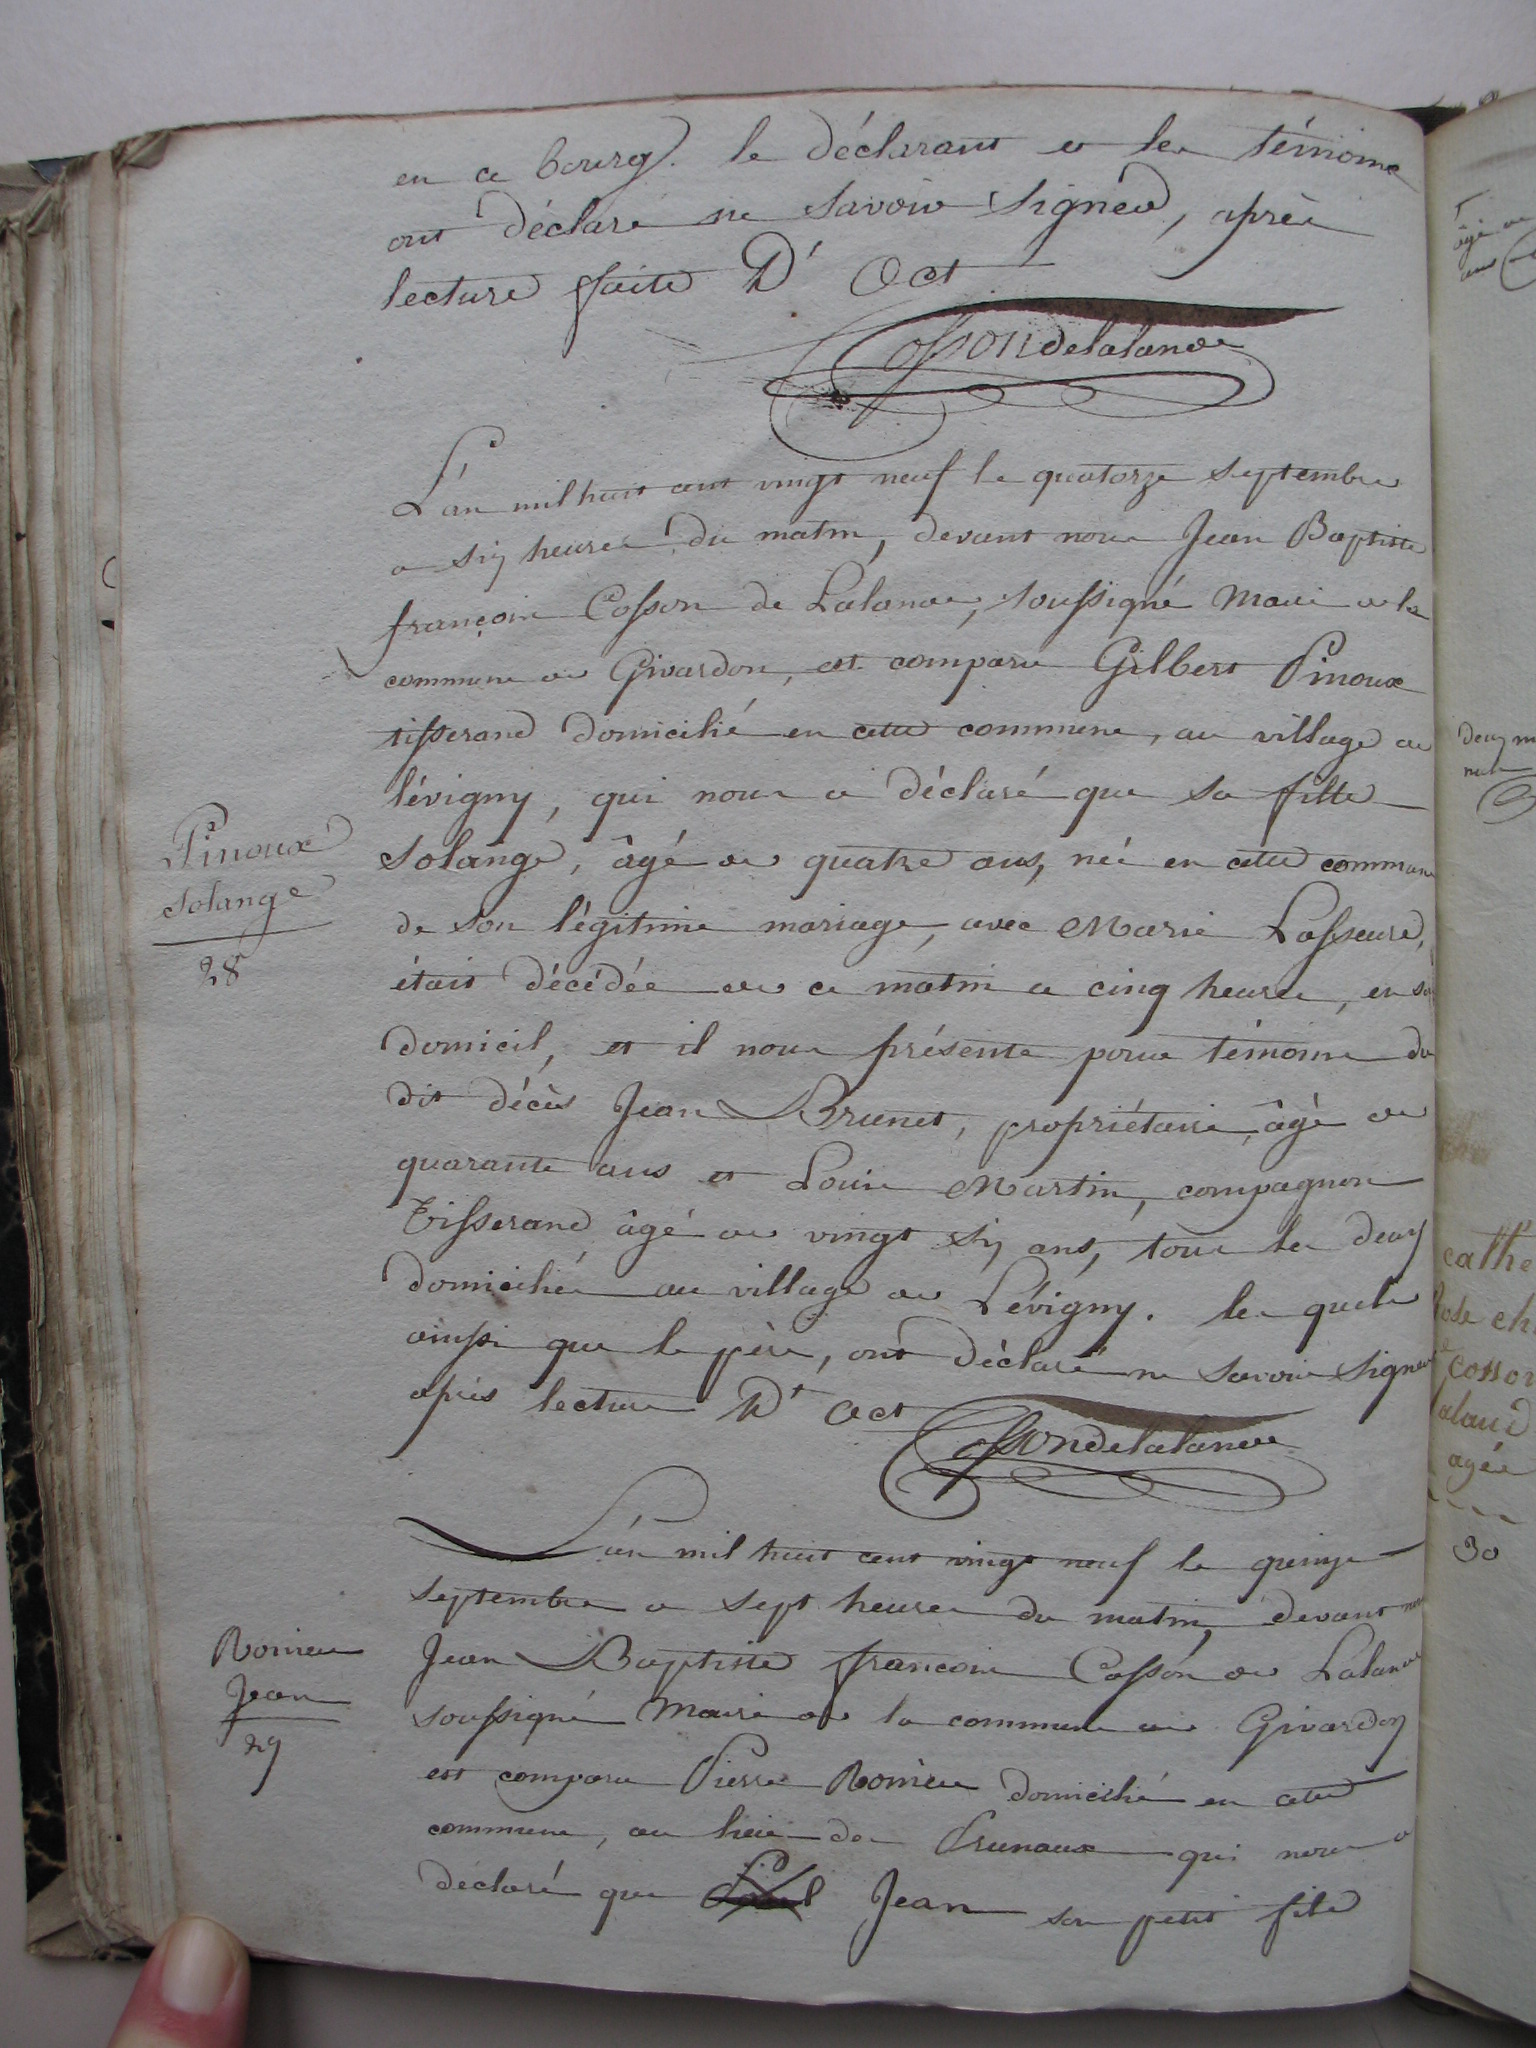 en ce bourg. le déclarant et les témoins
ont déclaré ne savoir signer, après
lecture faite Dt Act
Cossondelalande
L'an mil huit cent vingt neuf le quatorze septembre
a six heures du matin, devant nous Jean Baptiste
françois Cosson de Lalande, soussigné Maire de la
commune de Givardon, est comparu Gilbert Pinoux
tisserand domicilié en cette commune, au village de
lévigny, qui nous a déclaré que sa fille
Solange, âgé de quatre ans, née en cette commune
de son légitime mariage, avec Marie Lasseure,
était décédée de ce matin a cinq heures, en son
domicil, et il nous présente pour témoins du
dit décès Jean Brunet, propriétaire, âgé de
quarante ans et Louis Martin, compagnon
Tisserand âgé de vingt six ans, tous les deux
domiciliés au village de Lévigny. les quels
ainssi que le père, ont déclaré ne savoir signer
après lecture Dt Act
Cossondelalande
Pinoux
Solange
28
L'an mil huit cent vingt neuf le quinze
septembre a sept heures du matin, devant nous
Jean Baptiste françois Cosson de Lalande
soussigné Maire de la commune de Givardon
est comparu Pierre Romieu domicilié en cette
commune, au lieu des Prunaux qui nous a
déclaré que Jean son petit fils
Romieu
Jean
29
âgé de
ans
deux m
cathe
Rose ch
cosson
laland
agée
30